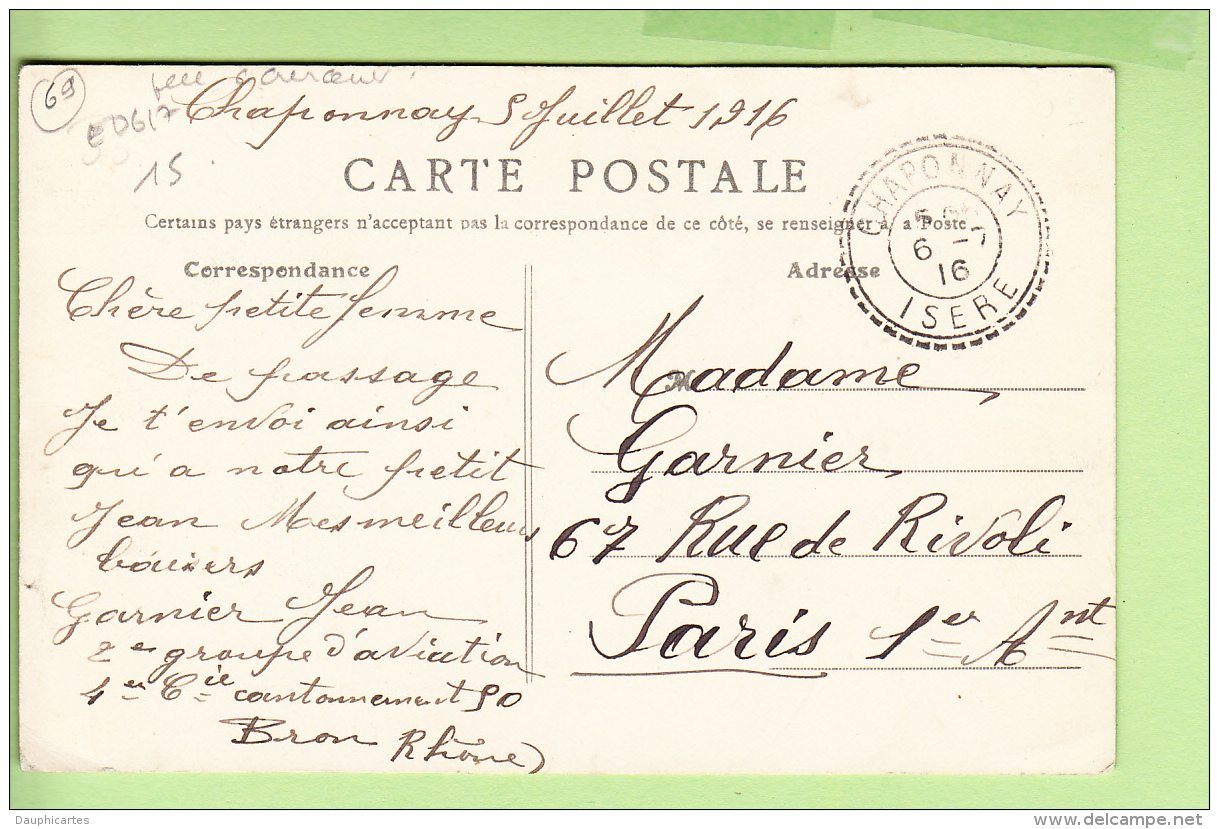 69
E0617
15
Chaponnay 5 Juillet 1916
CARTE POSTALE
Certains pays étrangers n'acceptant pas la correspondance de ce côté, se renseigner à la Poste
Correspondance
Adresse
CHAPONNAY
6 -7
16
ISERE
Chère petite femme
De passage
Je t'envoi ainsi
qu'a notre petit
Jean Mes meilleurs
baisers
Garnier Jean
2e groupe d'aviation
1er Cie cantonnement 50
Bron Rhône)
Madame
Garnier
67 Rue de Rivoli
Paris 1er Ant
Dauphicartes
delcampe.net